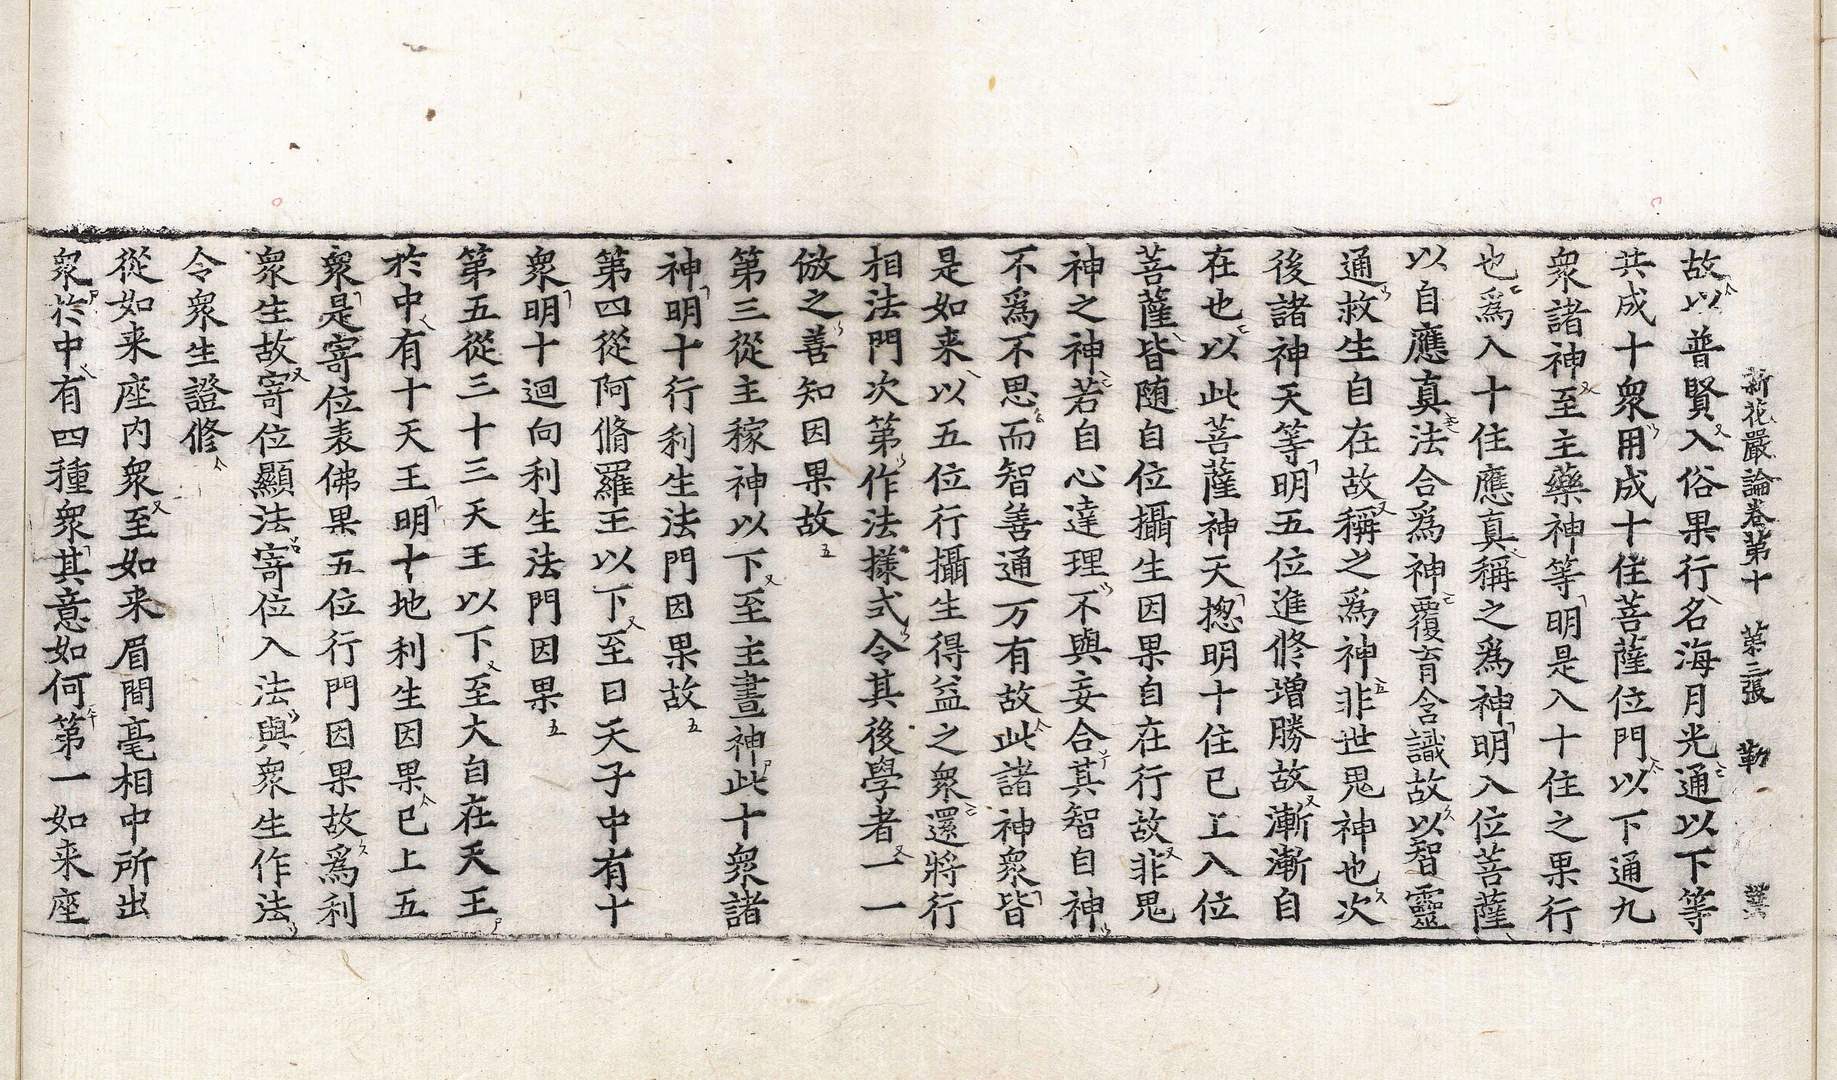 新花嚴論卷第十 第三張 勒
故以普賢入俗果行名海月光通以下等
共成十衆用成十住菩薩位門以下通九
衆諸神至主藥神等明是入十住之果行
也爲入十住應真稱之爲神明入位菩薩
以自應真法合爲神覆育含識故以智靈
通救生自在故稱之爲神非世鬼神也次
後諸神天等明五位進修增勝故漸漸自
在也以此菩薩神天揔明十住已上入位
菩薩皆随自位攝生因果自在行故非鬼
神之神若自心達理不與妄合其智自神
不爲不思而智善通万有故此諸神衆皆
是如来以五位行攝生得益之衆還將行
相法門次第作法樣式令其後學者一一
倣之善知因果故
第三從主稼神以下至主晝神此十衆諸
神明十行利生法門因果故
第四從阿脩羅王以下至日天子中有十
衆明十迴向利生法門因果
第五從三十三天王以下至大自在天王
於中有十天王明十地利生因果已上五
衆是寄位表佛果五位行門因果故爲利
衆生故寄位顯法寄位入法與衆生作法
令衆生證修
從如来座内衆至如来眉間毫相中所出
衆於中有四種衆其意如何第一如来座